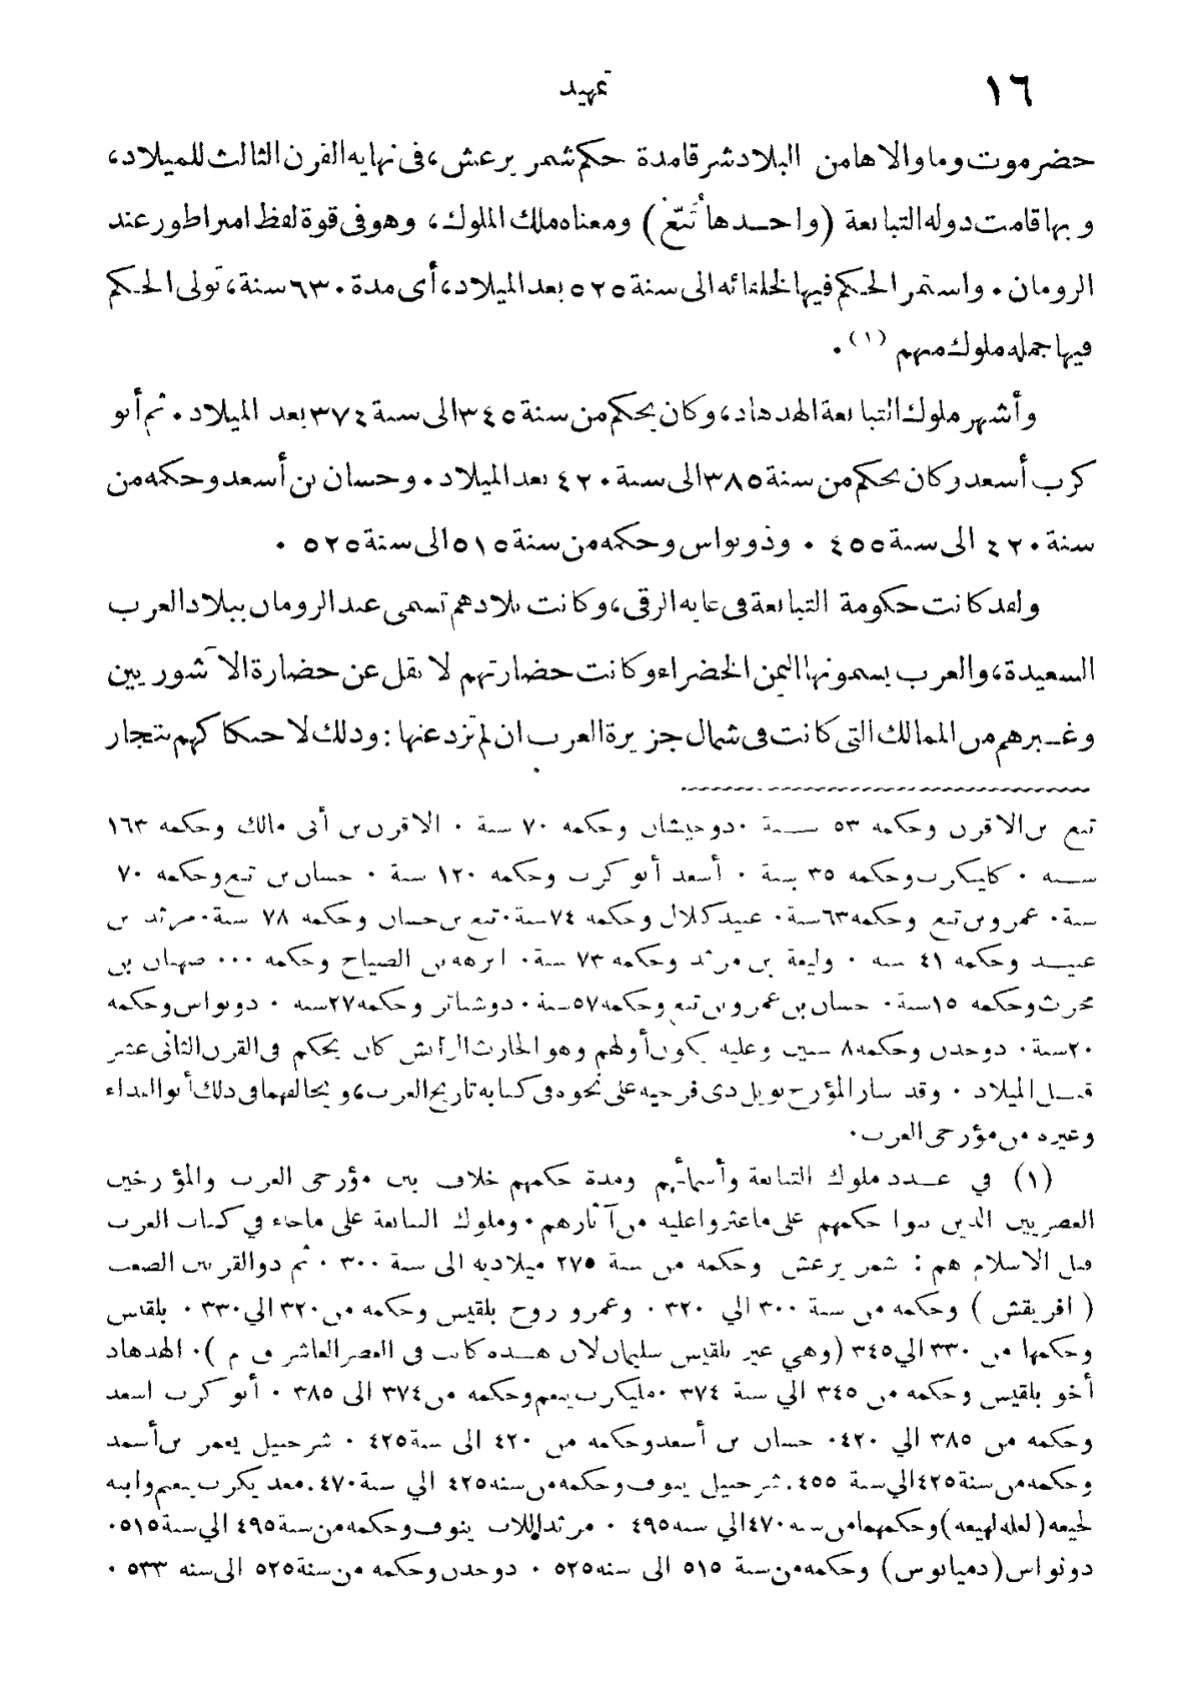 ١٦ تمهيد
حضرموت وما والاها من البلاد شرقا مدة حكم شمر يرعش، فى نهاية القرن الثالث للميلاد،
وبها قامت دولة التبابعة (واحدها تُبّع) ومعناه ملك الملوك، وهو فى قوة لفظ امبراطور عند
الرومان. واستمر الحكم فيها لخلفائه الى سنة ٥٢٥ بعد الميلاد، أى مدة ٦٣٠ سنة، تولى الحكم
فيها جملة ملوك منهم (١).
وأشهر ملوك التبابعة الهدهاد، وكان يحكم من سنة ٣٤٥ الى سنة ٣٧٤ بعد الميلاد. ثم أبو
كرب أسعد وكان يحكم من سنة ٣٨٥ الى سنة ٤٢٠ بعد الميلاد. وحسان بن أسعد وحكمه من
سنة ٤٢٠ الى سنة ٤٥٥. وذو نواس وحكمه من سنة ٥١٥ الى سنة ٥٢٥.
ولقد كانت حكومة التبابعة فى غاية الرقى، وكانت بلادهم تسمى عند الرومان ببلاد العرب
السعيدة، والعرب يسمونها اليمن الخضراء وكانت حضارتهم لا تقل عن حضارة الآشوريين
وغيرهم من الممالك التى كانت فى شمال جزيرة العرب ان لم تزد عنها: وذلك لاحتكاكهم بتجار
تبع بن الاقرن وحكمه ٥٣ سنة. ذو حيشان وحكمه ٧٠ سنة. الاقرن بن أبى مالك وحكمه ١٦٣
سنة. كليكرب وحكمه ٣٥ سنة. أسعد أبو كرب وحكمه ١٢٠ سنة. حسان بن تبع وحكمه ٧٠
سنة. عمرو بن تبع وحكمه ٦٣ سنة. عبد كلال وحكمه ٧٤ سنة. تبع بن حسان وحكمه ٧٨ سنة. مرثد بن
عبيد وحكمه ٤١ سنة. وليعة بن مرثد وحكمه ٧٣ سنة. ابرهه بن الصياح وحكمه ... صهبان بن
محرث وحكمه ١٥ سنة. حسان بن عمرو بن تبع وحكمه ٥٧ سنة. ذو شناتر وحكمه ٢٧ سنة. ذو نواس وحكمه
٢٠ سنة. ذو جدن وحكمه ٨ سنين وعليه يكون أولهم وهو الحارث الرائش كان يحكم فى القرن الثانى عشر
قبل الميلاد. وقد سار المؤرخ نويل دى فرجيه على نحوه فى كتابه تاريخ العرب، ويخالفهما فى ذلك أبو الفداء
وغيره من مؤرخى العرب.
(١) في عدد ملوك التبابعة وأسمائهم ومدة حكمهم خلاف بين مؤرخى العرب والمؤرخين
العصريين الذين بنوا حكمهم على ما عثروا عليه من آثارهم. وملوك التبابعة على ما جاء في كتاب العرب
قبل الاسلام هم: شمر يرعش وحكمه من سنة ٢٧٥ ميلادية الى سنة ٣٠٠. ثم ذو القرنين الصعب
(افريقش) وحكمه من سنة ٣٠٠ الي ٣٢٠. وعمرو زوج بلقيس وحكمه من ٣٢٠ الي ٣٣٠. بلقيس
وحكمها من ٣٣٠ الي ٣٤٥ (وهي غير بلقيس سليمان لان هذه كانت فى العصر العاشر ق م). الهدهاد
أخو بلقيس وحكمه من ٣٤٥ الي سنة ٣٧٤. مليكرب يهنعم وحكمه من ٣٧٤ الى ٣٨٥. أبو كرب اسعد
وحكمه من ٣٨٥ الي ٤٢٠. حسان بن أسعد وحكمه من ٤٢٠ الى سنة ٤٢٥. شرحبيل يعفر بن أسعد
وحكمه من سنة ٤٢٥ الي سنة ٤٥٥. شرحبيل ينوف وحكمه من سنة ٤٢٥ الي سنة ٤٧٠. معد يكرب ينعم وابنه
لحيعه (لعله لهيعه) وحكمهما من سنه ٤٧٠ الي سنه ٤٩٥. مرثد اللات ينوف وحكمه من سنة ٤٩٥ الي سنة ٥١٥.
ذو نواس (دميانوس) وحكمه من سنة ٥١٥ الى سنه ٥٢٥. ذو جدن وحكمه من سنة ٥٢٥ الى سنه ٥٣٣.